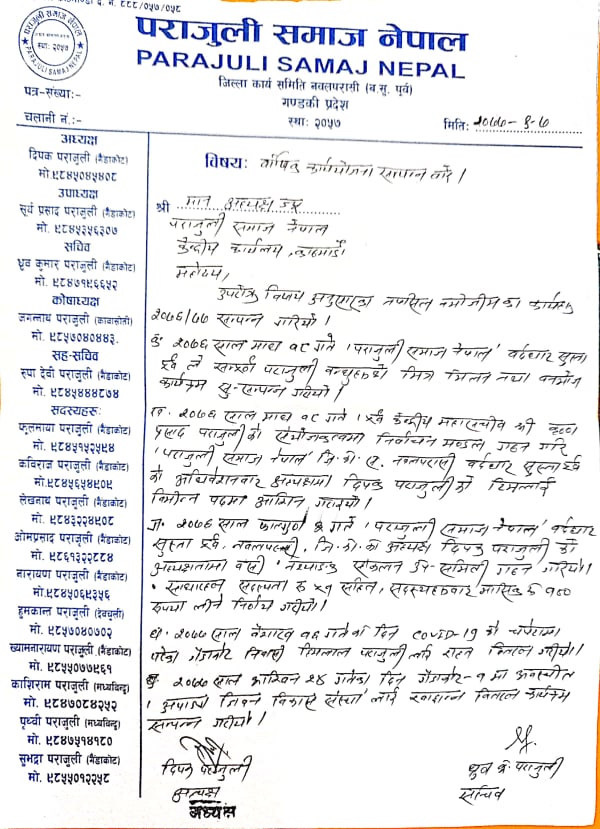 द. नं. ८८८/०५७/०५८
पराजुली समाज नेपाल
स्थाः २०५७
पराजुली समाज नेपाल
PARAJULI SAMAJ NEPAL
जिल्ला कार्य समिति नवलपरासी (ब.सु. पूर्व)
गण्डकी प्रदेश
स्थाः २०५७
पत्र-संख्याः-
चलानी नं.:-
मितिः २०७७-६-७
अध्यक्ष
दिपक पराजुली (गैंडाकोट)
मो.९८४५०४५४०८
उपाध्यक्ष
सूर्य प्रसाद पराजुली (गैंडाकोट)
मो. ९८४५३५६३०७
सचिव
ध्रुव कुमार पराजुली (गैंडाकोट)
मो. ९८४७१५६६५२
कोषाध्यक्ष
जगन्नाथ पराजुली (कावासोती)
मो. ९८५७०४०४४३.
सह-सचिव
रुपा देवी पराजुली (गैंडाकोट)
मो. ९८४५४४४८७४
सदस्यहरु
फूलमाया पराजुली (गैंडाकोट)
मो. ९८४५१५२५९४
कविराज पराजुली (गैंडाकोट)
मो. ९८४५६५४९०९
लेखनाथ पराजुली (गैंडाकोट)
मो. ९८४३२२४९०८
ओमप्रसाद पराजुली (गैंडाकोट)
मो. ९८६१३२२८८४
नारायण पराजुली (गैंडाकोट)
मो. ९८४५०६९३५६
हुमकान्त पराजुली (देवचुली)
मो. ९८५७०४०७०२
ख्यामनारायण पराजुली (गैंडाकोट)
मो. ९८५५०७७९६१
काशिराम पराजुली (मध्यविन्दु)
मो. ९८४७०८४२५२
पृथ्वी पराजुली (मध्यविन्दु)
मो. ९८४७५१४१८०
सुभद्रा पराजुली (गैंडाकोट)
मो. ९८५५०१२२५८
विषयः वार्षिक कार्ययोजना सम्पन्न बारे।
श्री मान अध्यक्ष ज्यू
पराजुली समाज नेपाल
केन्द्रीय कार्यालय, काठमाडौं
महोदय,
उपरोक्त विषय अनुसारका तपसिल बमोजीमका कार्यक्रम
२०७६/७७ सम्पन्न गरियो।
२०७६ साल माघ १८ गते 'पराजुली समाज नेपाल' बर्दघाट सुस्ता
पूर्व ले सम्पूर्ण पराजुली बन्धुहरुको मित्र मिलन तथा वनभोज
कार्यक्रम सु-सम्पन्न गरियो।
ख. २०७६ साल माघ १८ गते पूर्व केन्द्रीय महासचिव श्री
प्रसाद पराजुली को संयोजकत्वमा निर्वाचन मण्डल गठन गरि
'पराजुली समाज नेपाल' जि.का.स. नवलपरासी बर्दघाट सुस्ता पूर्व
को अधिवेशनबाट अध्यक्षमा दिपक पराजुली को टिमलाई
विभिन्न पदमा आसिन गराइयो।
ग. २०७६ साल फाल्गुण गते 'पराजुली समाज नेपाल' बर्दघाट
सुस्ता पूर्व, नवलपरासी, जि.का.का अध्यक्ष दिपक पराजुली को
अध्यक्षतामा बसी संकलन उप-समिति गठन गरियो।
साधारण सदस्यता रु ५१ सहित, सदस्यहरुबाट मासिक रु १००
रुपैया लीने निर्णय गरियो।
घ. २०७७ साल बैशाख १६ गतेका दिन COVID-19 को चपेटामा
परेका गैंडाकोट निवासी पराजुली लाई राहत वितरण गरियो।
ङ २०७७ साल आश्विन २४ गतेका दिन गैंडाकोट-१ मा अवस्थित
'अपाङ्ग जिवन विकास संस्था' लाई खाद्यान्न वितरण कार्यक्रम
सम्पन्न गरियो।
दिपक पराजुली
अध्यक्ष
अध्यक्ष
ध्रुव कु. पराजुली
सचिव